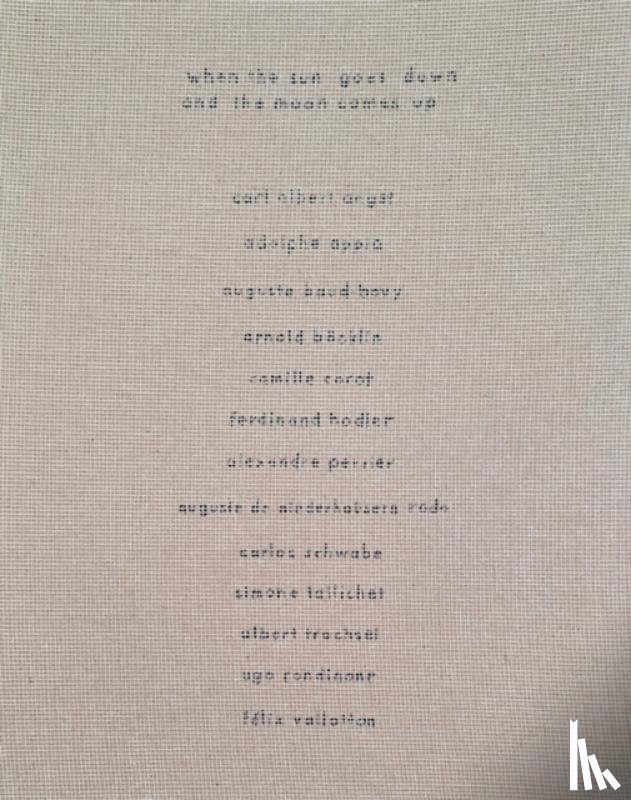 when the sun goes down
and the moon comes up
carl albert angst
adolphe appia
auguste baud-bovy
arnold böcklin
camille corot
ferdinand hodler
alexandre perrier
auguste de niederhäusern rodo
carlos schwabe
simone tallichet
albert trachsel
ugo rondinone
félix vallotton